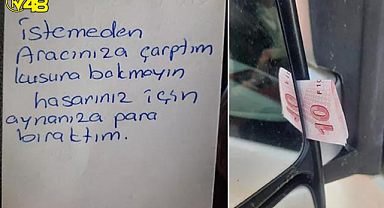 TV48
istemeden
Aracınıza çarptım
kusura bakmayın
hasarınız için
aynanıza para
bıraktım.
10
10